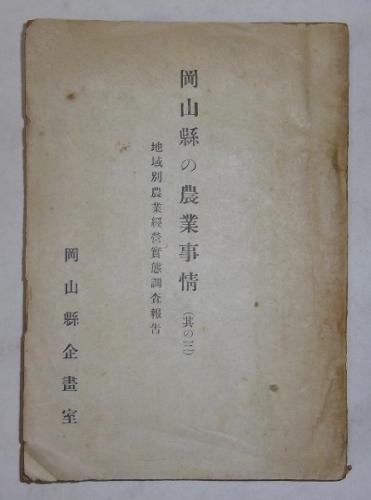 岡山縣の農業事情(其の三)
地域別農業經營實態調査報告
岡山縣企畫室